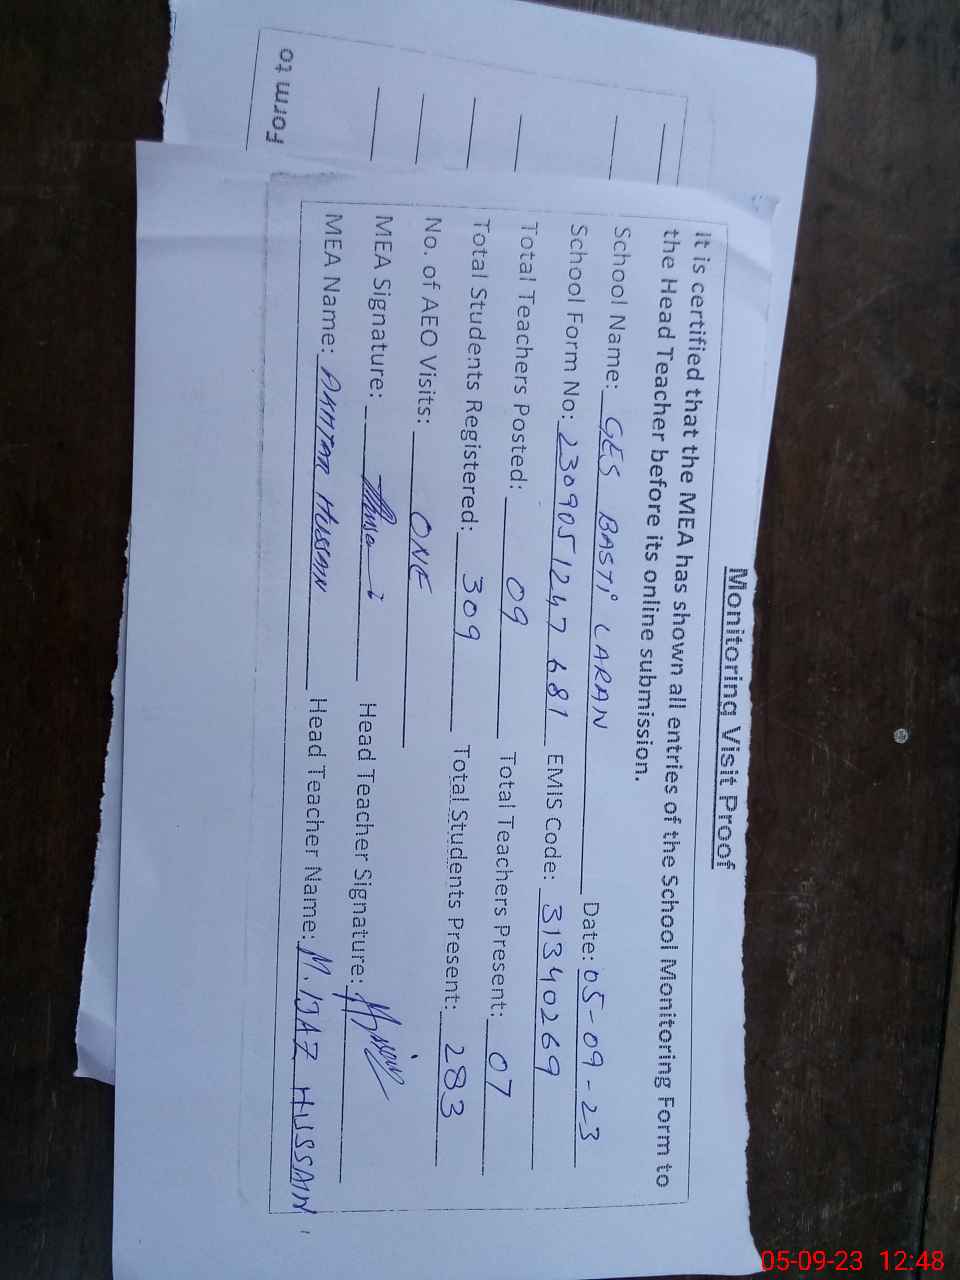 Monitoring Visit Proof
It is certified that the MEA has shown all entries of the School Monitoring Form to
the Head Teacher before its online submission.
School Name: GES BASTI LARAN Date: 05-09-23
School Form No: 2309051247681 EMIS Code: 31340269
Total Teachers Posted: 09 Total Teachers Present: 07
Total Students Registered: 309 Total Students Present: 283
No. of AEO Visits: ONE
MEA Signature: Head Teacher Signature:
MEA Name: AKHTAR HUSSAIN Head Teacher Name: M. IJAZ HUSSAIN
Form to
05-09-23 12:48